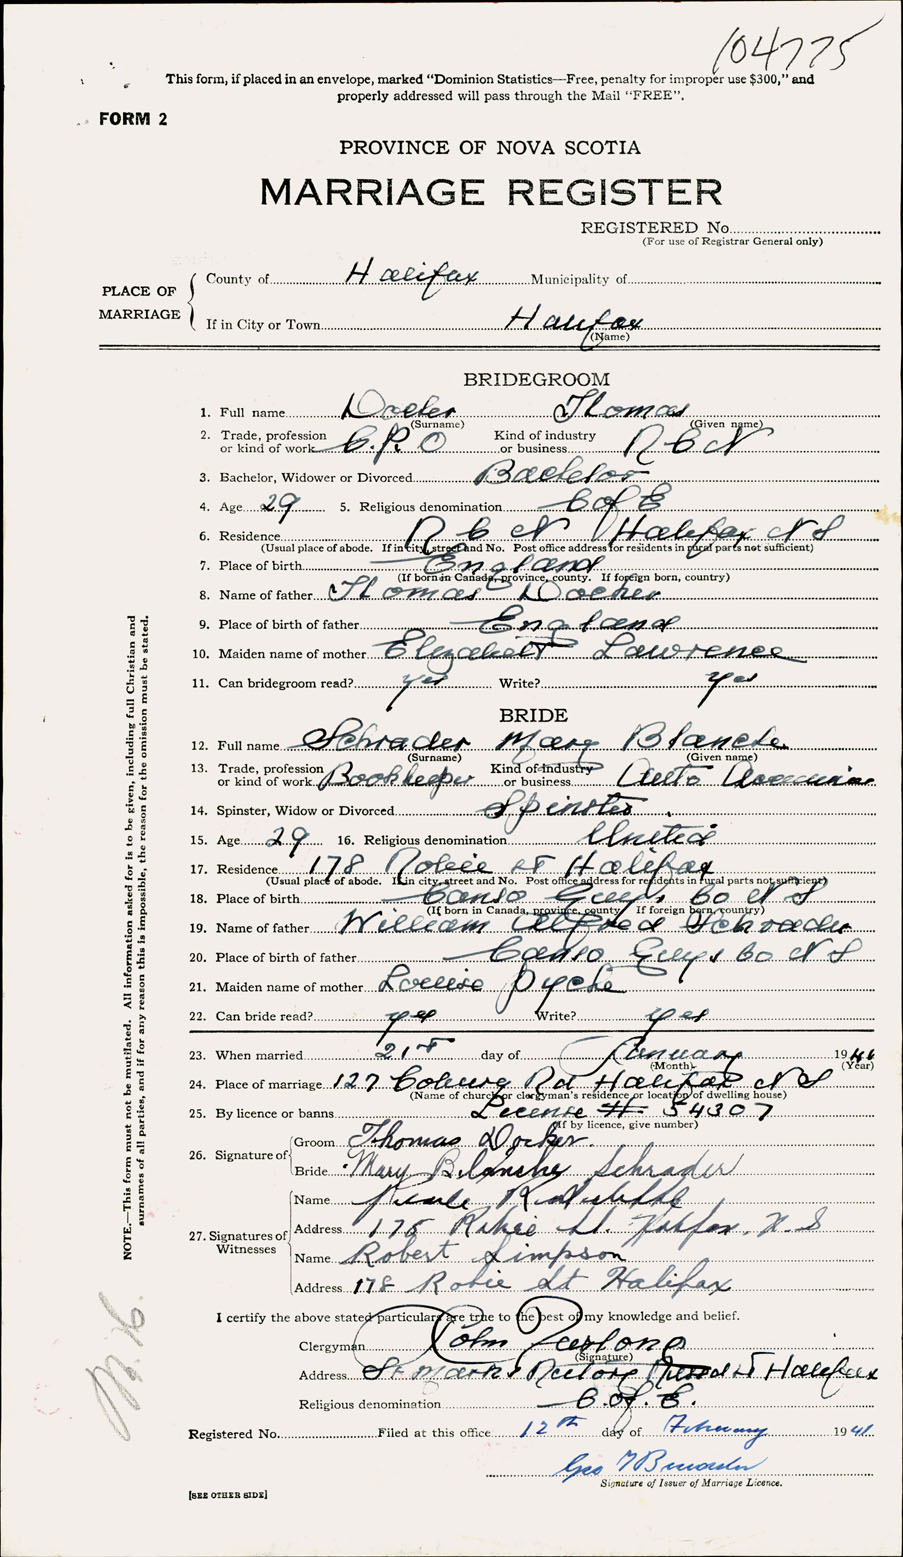 104775
This form, if placed in an envelope, marked "Dominion Statistics—Free, penalty for improper use $300," and
properly addressed will pass through the Mail "FREE".
FORM 2
PROVINCE OF NOVA SCOTIA
MARRIAGE REGISTER
REGISTERED No.
(For use of Registrar General only)
PLACE OF MARRIAGE
County of Halifax Municipality of
If in City or Town Halifax
(Name)
BRIDEGROOM
1. Full name Docker Thomas
(Surname) (Given name)
2. Trade, profession or kind of work C.P.O Kind of industry or business R C N
3. Bachelor, Widower or Divorced Bachelor
4. Age 29 5. Religious denomination C of E
6. Residence R C N Halifax N S
(Usual place of abode. If in city, street and No. Post office address for residents in rural parts not sufficient)
7. Place of birth England
(If born in Canada, province, county. If foreign born, country)
8. Name of father Thomas Docker
9. Place of birth of father England
10. Maiden name of mother Elizabeth Lawrence
11. Can bridegroom read? yes Write? yes
BRIDE
12. Full name Schrader Mary Blanche
(Surname) (Given name)
13. Trade, profession or kind of work Bookkeeper Kind of industry or business Auto
14. Spinster, Widow or Divorced Spinster
15. Age 29 16. Religious denomination United
17. Residence 178 Robie St Halifax
(Usual place of abode. If in city, street and No. Post office address for residents in rural parts not sufficient)
18. Place of birth Canso Guys Co N S
(If born in Canada, province, county. If foreign born, country)
19. Name of father William Alfred Schrader
20. Place of birth of father Canso Guys Co N S
21. Maiden name of mother Louise Dyche
22. Can bride read? yes Write? yes
23. When married 21st day of January 1941
(Month) (Year)
24. Place of marriage 127 Coburg Rd Halifax N S
(Name of church or clergyman's residence or location of dwelling house)
25. By licence or banns License # 54307
(If by licence, give number)
26. Signature of Groom Thomas Docker.
Bride Mary Blanche Schrader
27. Signatures of Witnesses
Name
Address 178 Robie St. Halifax. N. S
Name Robert Simpson
Address 178 Robie St Halifax
I certify the above stated particulars are true to the best of my knowledge and belief.
Clergyman John Furlong
(Signature)
Address St Marks Rectory Russell St Halifax
Religious denomination C. of E.
Registered No. Filed at this office 12th day of February 1941
Geo
Signature of Issuer of Marriage Licence.
[SEE OTHER SIDE]
NOTE.—This form must not be mutilated. All information asked for is to be given, including full Christian and
surnames of all parties, and if for any reason this is impossible, the reason for the omission must be stated.